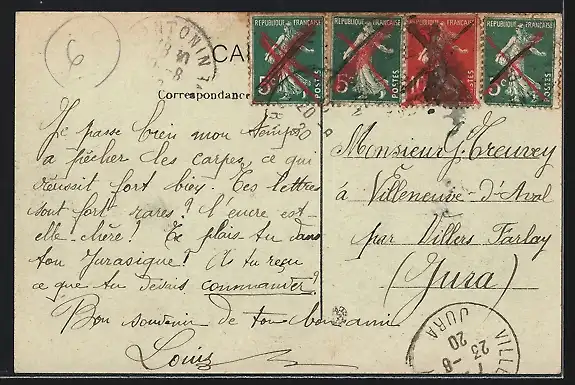 6
ANTONIN
CA
RÉPUBLIQUE FRANÇAISE
5 POSTES
RÉPUBLIQUE FRANÇAISE
5 POSTES
RÉPUBLIQUE FRANÇAISE
POSTES
RÉPUBLIQUE FRANÇAISE
5 POSTES
Correspondance
Je passe bien mon temps
à pêcher des carpes, ce qui
réussit fort bien. Tes lettres
sont fort rares? l'encre est-
elle chère? Te plais tu dans
ton Jurasique? As tu reçu
ce que tu devais commander?
Bon souvenir de ton bon ami
Louis
Monsieur J. Treuvey
à Villeneuve-d'Aval
par Villers Farlay
(Jura)
VILLE
23-8
20
JURA